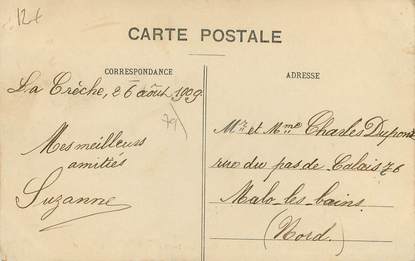 12€
CARTE POSTALE
CORRESPONDANCE
ADRESSE
La Crèche, 26 août 1909
79
Mes meilleurs
amitiés
Suzanne
Mr et Mme Charles Dupont
rue du pas de Calais 76
Malo-les-bains
(Nord.)